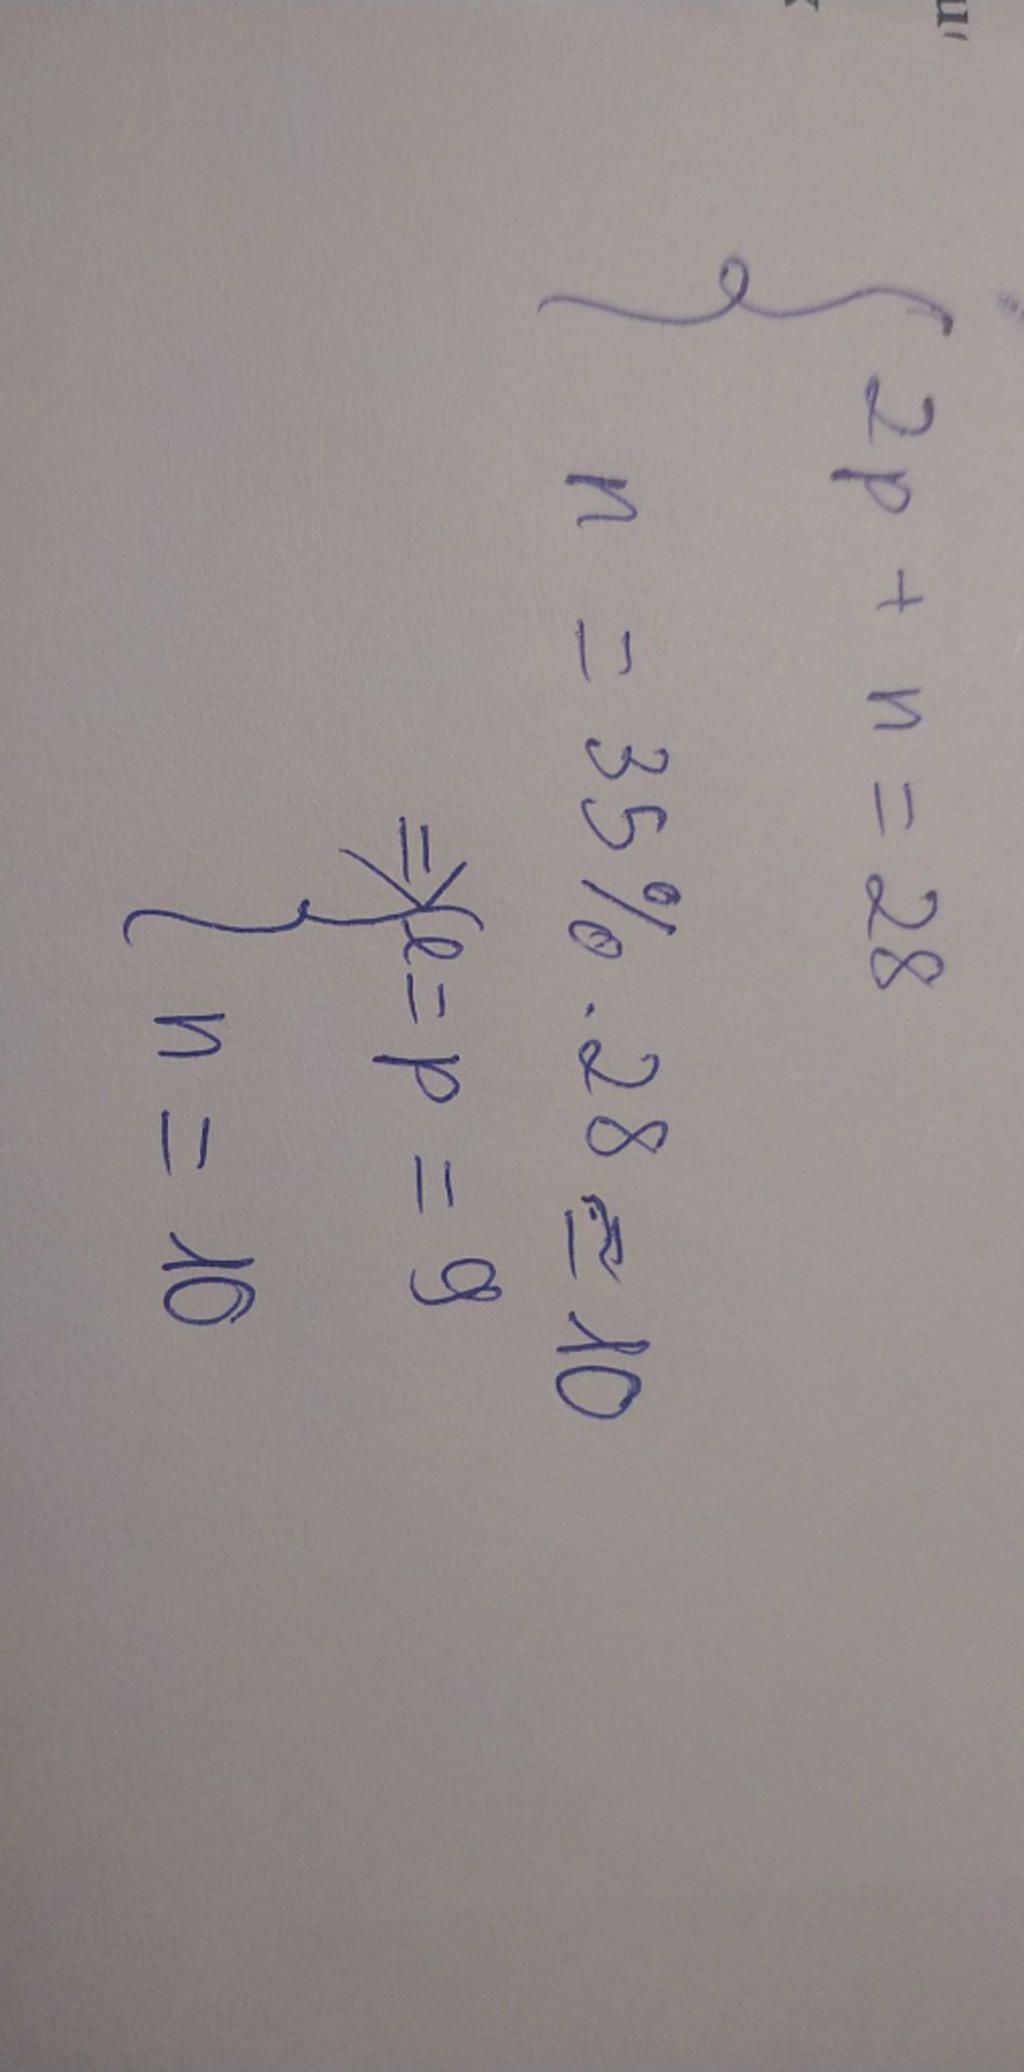 2p + n = 28
n = 35% . 28 ≈ 10
=> e = p = 9
n = 10